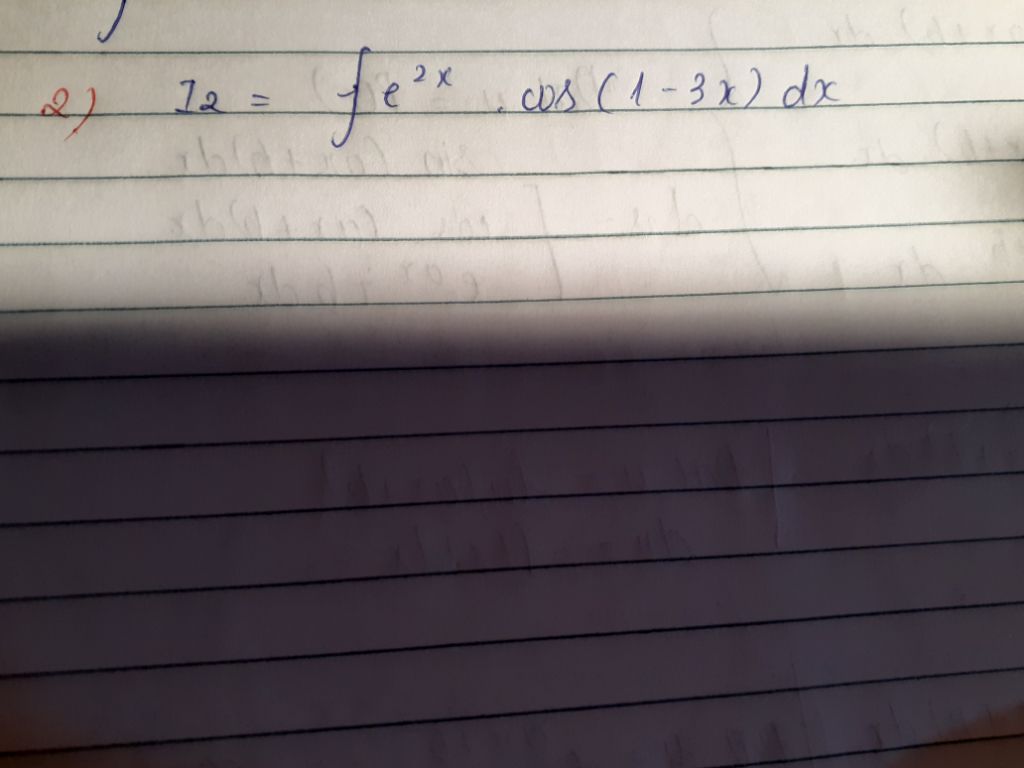 2) I2 = ∫ e^2x . cos (1 - 3x) dx